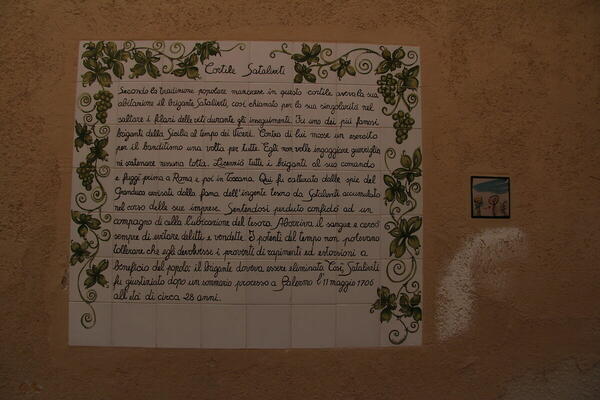 Cortile Saltaliviti
Secondo la tradizione popolare marinese in questo cortile aveva la sua
abitazione il brigante Saltaliviti, così chiamato per la sua singolarità nel
saltare i filari delle viti durante gli inseguimenti. Fu uno dei più famosi
briganti della Sicilia al tempo dei Viceré. Contro di lui mosse un esercito
per il banditismo una volta per tutte. Egli non volle ingaggiare guerriglia
né sostenere nessuna lotta. Licenziò tutti i briganti al suo comando
e fuggì prima a Roma e poi in Toscana. Qui fu catturato dalle spie del
Granduca avvisato della fama dell'ingente tesoro da Saltaliviti accumulato
nel corso delle sue imprese. Sentendosi perduto confidò ad un
compagno di cella l'ubicazione del tesoro. Aborriva il sangue e cercò
sempre di evitare delitti e vendette. I potenti del tempo non potevano
tollerare che egli devolvesse i proventi di rapimenti ed estorsioni a
beneficio del popolo: il brigante doveva essere eliminato. Così Saltaliviti
fu giustiziato dopo un sommario processo a Palermo l'11 maggio 1706
all'età di circa 28 anni.